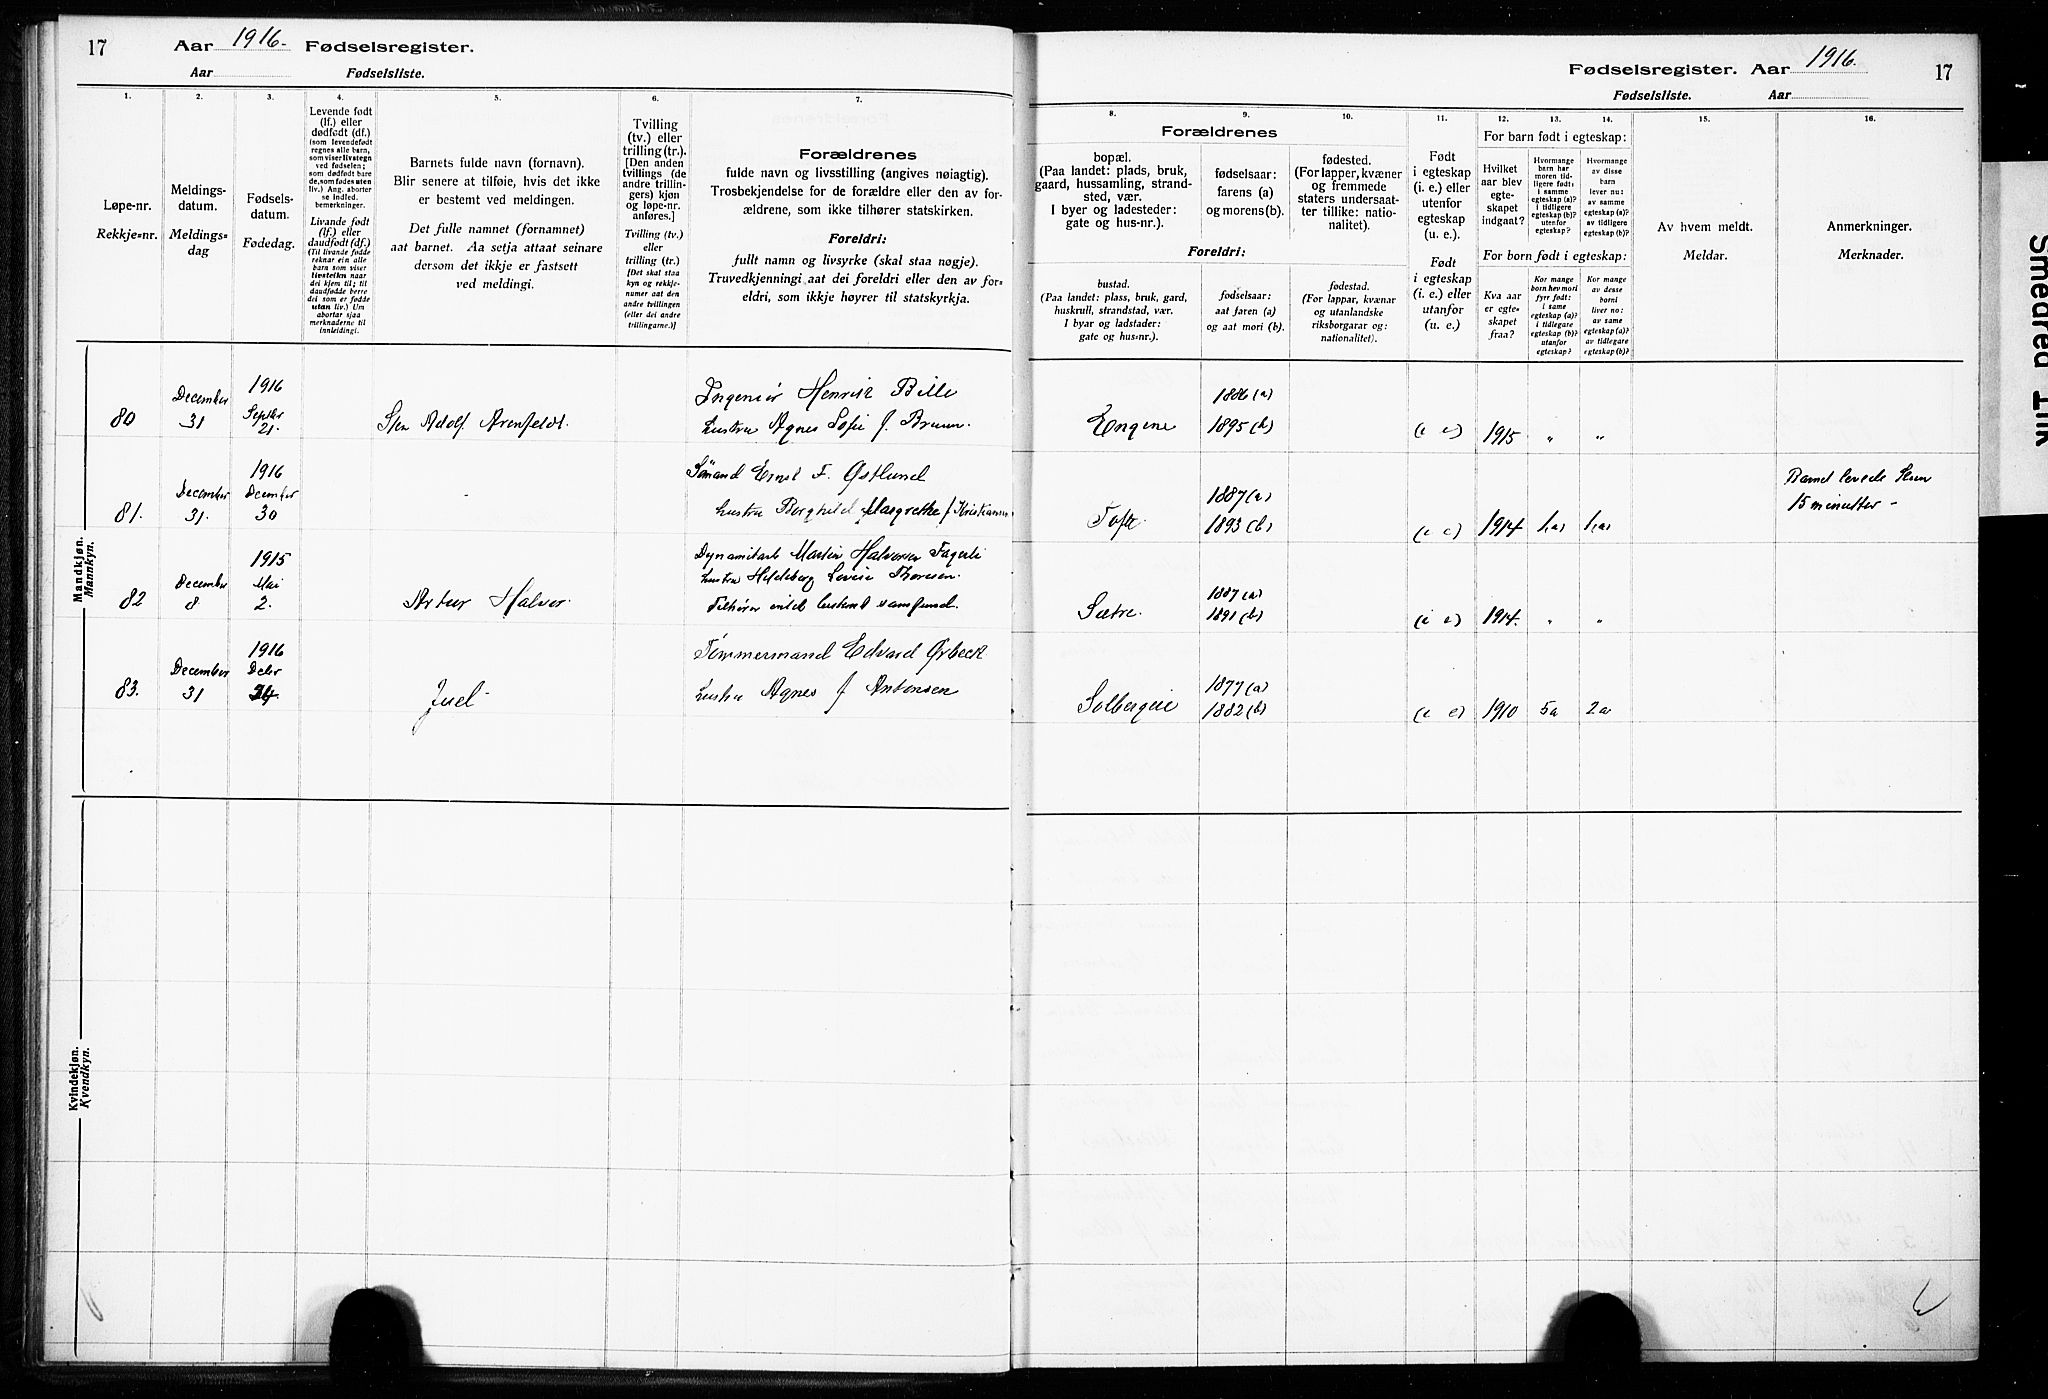 17 Aar 1916. Fødselsregister.
Aar Fødselsliste.
1. 2. 3. 4. 5. 6. 7.
Løpe-nr.
Rekkje-nr.
Meldings-
datum.
Meldings-
dag
Fødsels-
datum.
Fødedag.
Levende født
(lf.) eller
dødfødt (df.)
(som levendefødt
regnes alle barn,
som viser livstegn
ved fødselen;
som dødfødt bare
de, som fødes uten
liv.) Ang. aborter
se indled.
bemerkninger.
Livande født
(lf.) eller
daudfødt (df.)
(Til livande fødde
reknar ein alle
barn som viser
livsteikn naar
dei kjem til; til
daudfødde berre
dei som er fødde
utan liv.) Um
abortar sjaa
merknaderne til
innleidingi.
Barnets fulde navn (fornavn).
Blir senere at tilføie, hvis det ikke
er bestemt ved meldingen.
Det fulle namnet (fornamnet)
aat barnet. Aa setja attaat seinare
dersom det ikkje er fastsett
ved meldingi.
Tvilling
(tv.) eller
trilling (tr.).
[Den anden
tvillings (de
andre trillin-
gers) kjøn
og løpe-nr.
anføres.]
Tvilling (tv.)
eller
trilling (tr.)
[Det skal staa
kyn og rekkje-
numer aat den
andre tvillingen
(eller dei andre
trillingarne.)]
Forældrenes
fulde navn og livsstilling (angives nøiagtig).
Trosbekjendelse for de forældre eller den av for-
ældrene, som ikke tilhører statskirken.
Foreldri:
fullt namn og livsyrke (skal staa nøgje).
Truvedkjenningi aat dei foreldri eller den av for-
eldri, som ikkje høyrer til statskyrkja.
Mandkjøn.
Mannkyn.
80 December 31 1916 Septbr 21. Sten Adolf Arenfeldt. Ingeniør Henrik Bille
hustru Agnes Sofie f. Bruun.
81. December 31. 1916 December 30 - Sömand Ernst F. Østlund
hustru Borghild Margrethe f Kristiansen
82 December 8 1915 Mai 2. Artur Halvor. Dynamitarb Martin Halvorsen Fagerli
hustru Hildeborg Lovise Thoresen.
Tilhører intet bestemt samfund.
83. December 31 1916 Decbr 24. Juel Tømmermand Edvard Ørbeck
hustru Agnes f Antonsen
Kvindekjøn.
Kvendkyn.
Fødselsregister. Aar 1916. 17
Fødselsliste. Aar
8. 9. 10. 11. 12. 13. 14. 15. 16.
Forældrenes
bopæl.
(Paa landet: plads, bruk,
gaard, hussamling, strand-
sted, vær.
I byer og ladesteder:
gate og hus-nr.).
fødselsaar:
farens (a)
og morens (b).
fødested.
(For lapper, kvæner
og fremmede
staters undersaat-
ter tillike: natio-
nalitet).
Foreldri:
bustad.
(Paa landet: plass, bruk, gard,
huskrull, strandstad, vær.
I byar og ladstader:
gate og hus-nr.).
fødselsaar:
aat faren (a)
og aat mori (b).
fødestad.
(For lappar, kvænar
og utanlandske
riksborgarar og:
nationalitet).
Født
i egteskap
(i. e.) eller
utenfor
egteskap
(u. e.).
Født
i egteskap
(i. e.) eller
utanfor
(u. e.)
For barn født i egteskap:
Hvilket
aar blev
egte-
skapet
indgaat?
Hvormange
barn har
moren tid-
ligere født:
i samme
egteskap (a)?
i tidligere
egteskap (b)?
utenfor
egteskap?
Hvormange
av disse
barn
lever nu:
av samme
egteskap (a)?
av tidligere
egteskap (b)?
For born født i egteskap:
Kva aar
er egte-
skapet
fraa?
Kor mange
born hev mori
fyrr født:
i same
egteskap (a)?
i tidlegare
egteskap (b)?
utanfor
egteskap?
Kor mange
av desse
borni
liver no:
av same
egteskap (a)?
av tidlegare
egteskap (b)?
Av hvem meldt.
Meldar.
Anmerkninger.
Merknader.
Engene 1886 (a) 1895 (b) (i e) 1915 " "
Tofte. 1887 (a) 1893 (b) (i e) 1914 1 a) 1 a) Barnet levede kun
15 minutter -
Sætre. 1887 (a) 1891 (b) (i e) 1914. " "
Solbergeie 1877 (a) 1882 (b) (i e) 1910 5a 2a
Smedred Ink